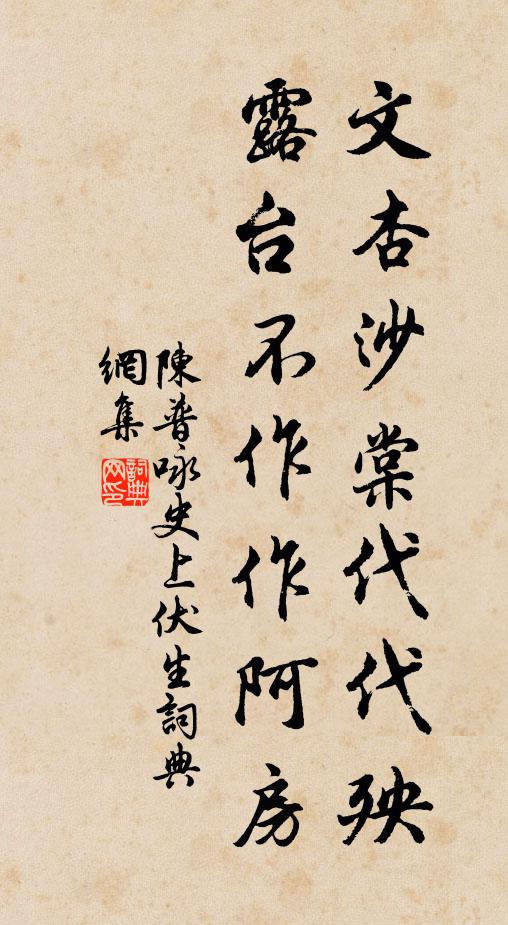 文杏沙棠代代殃
露台不作作阿房
陳普咏史上伏生詞典
網集
詞典网印